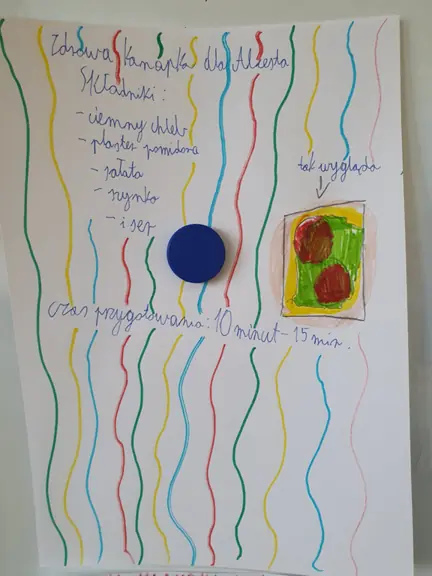 Zdrowa kanapka dla Alcesta
Składniki:
- ciemny chleb
- plaster pomidora
- sałata
- szynka
- i ser
tak wygląda
czas przygotowania: 10 minut - 15 min.